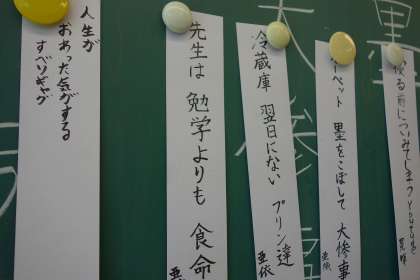 る前についみてしまうYoutube
ペット 墨をこぼして 大惨事
亜依
冷蔵庫 翌日にない プリン達
亜依
先生は 勉学よりも 食命
亜
人生が
おわった気がする
すべりギャグ